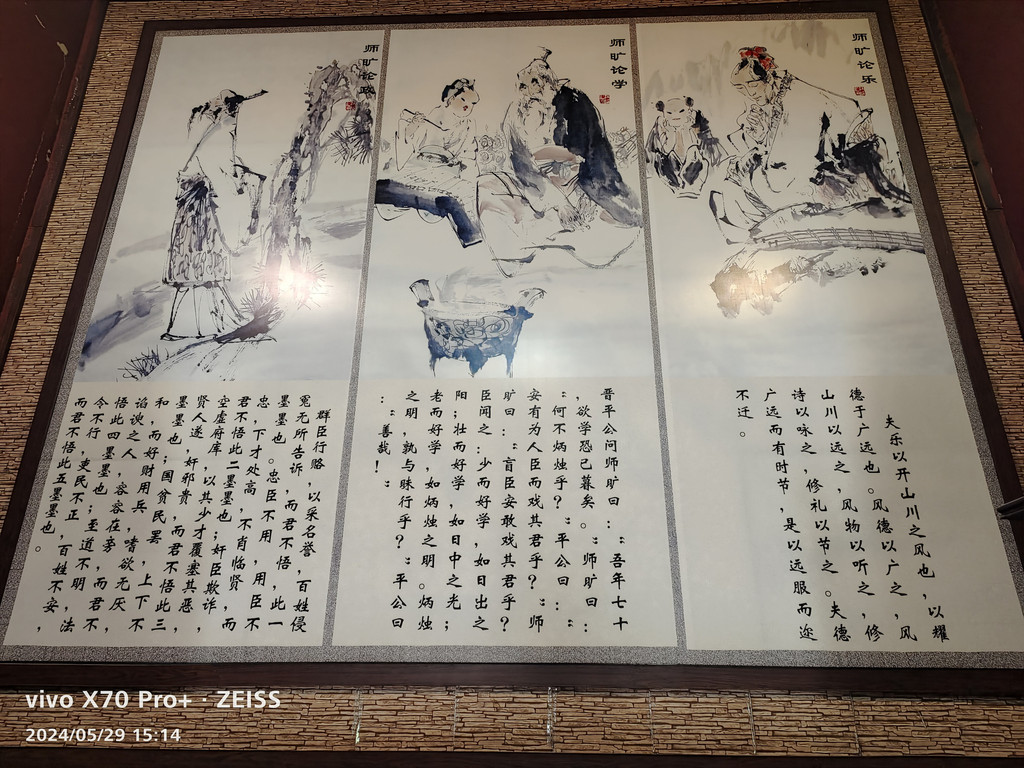 师旷论乐
夫乐以开山川之风也，以耀
德于广远也。风德以广之，风
山川以远之，风物以听之，修
诗以咏之，修礼以节之。夫德
广远而有时节，是以远服而迩
不迁。
师旷论学
晋平公问师旷曰：“吾年七十
，欲学恐已暮矣。”师旷曰：
“何不炳烛乎？”平公曰：“
安有为人臣而戏其君乎？”师
旷曰：“盲臣安敢戏其君乎？
臣闻之：少而好学，如日出之
阳；壮而好学，如日中之光；
老而好学，如炳烛之明。炳烛
之明，孰与昧行乎？”平公曰
：“善哉！”
师旷论政
群臣行赂，以采名誉，百姓侵
冤无所告诉，而君不悟，此一
墨墨也。忠臣不用，用臣不
忠，下才处高，不肖临贤，而
君不悟此二墨墨也；奸臣欺诈，
空虚府库，以其少才覆塞其恶，
贤人逐，奸邪贵，而君不悟此三
墨墨也；国贫民罢，上下不
和，而好财用兵，嗜欲无厌，
谄谀之人，容容在旁，而君不
悟此四墨墨也；至道不明，法
令不行，吏民不正，百姓不安，
而君不悟此五墨墨也。
vivo X70 Pro+ · ZEISS
2024/05/29 15:14